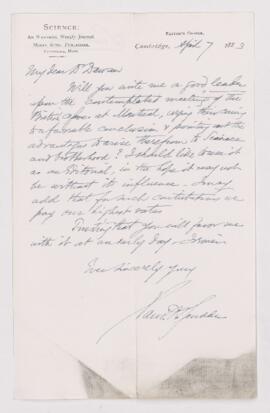 SCIENCE:
An Illustrated Weekly Journal
Moses King, Publisher,
Cambridge, Mass.
Editor's Office,
Cambridge, April 7 1883
My dear Dr Dawson
Will you write me a good leader
upon the contemplated meeting of the
British Assoc. at Montreal, urging
a favorable conclusion & pointing out the
advantages to arise therefrom to Science
and brotherhood? I should like to use it
as an Editorial, in the hope it may not
be without its influence. I may
add that for such contributions we
pay our highest rates
Trusting that you will favor me
with it at an early day - I remain
Ever sincerely yours
Sam. H. Scudder